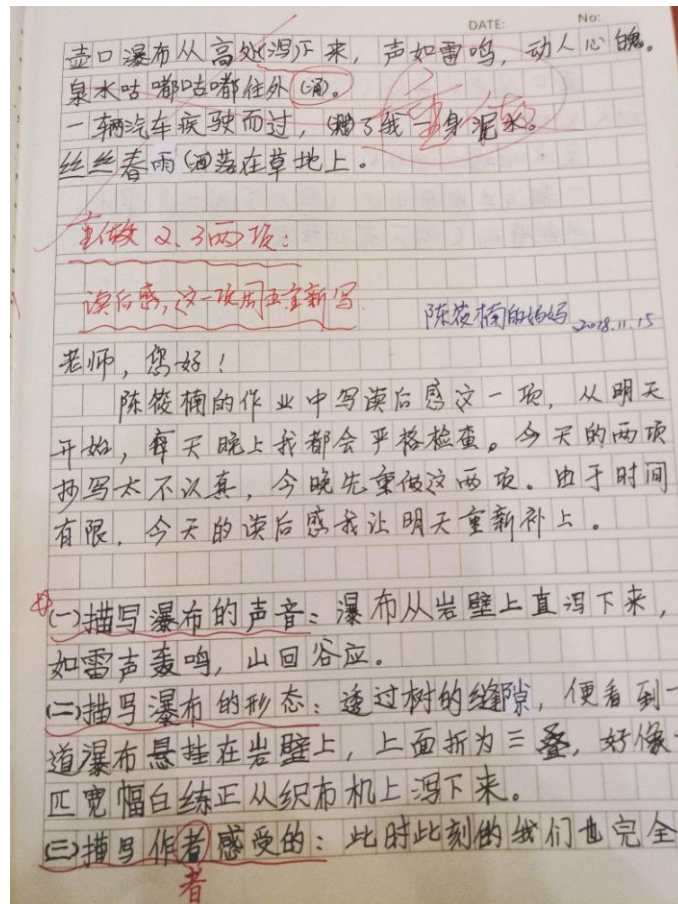 DATE: No:
壶口瀑布从高处(泻)下来，声如雷鸣，动人心魄。
泉水咕嘟咕嘟往外(涌)。
一辆汽车疾驶而过，(溅)了我一身泥水。
丝丝春雨(洒)落在草地上。
重做
重做2、3两项：
读后感，这一项周五重新写
陈筱楠的妈妈 2018.11.15
老师，您好！
陈筱楠的作业中写读后感这一项，从明天
开始，每天晚上我都会严格检查。今天的两项
抄写太不认真，今晚先重做这两项。由于时间
有限，今天的读后感我让明天重新补上。
(一)描写瀑布的声音：瀑布从岩壁上直泻下来，
如雷声轰鸣，山回谷应。
(二)描写瀑布的形态：透过树的缝隙，便看到一
道瀑布悬挂在岩壁上，上面折为三叠，好像一
匹宽幅白练正从织布机上泻下来。
(三)描写作者感受的：此时此刻的我们也完全
者